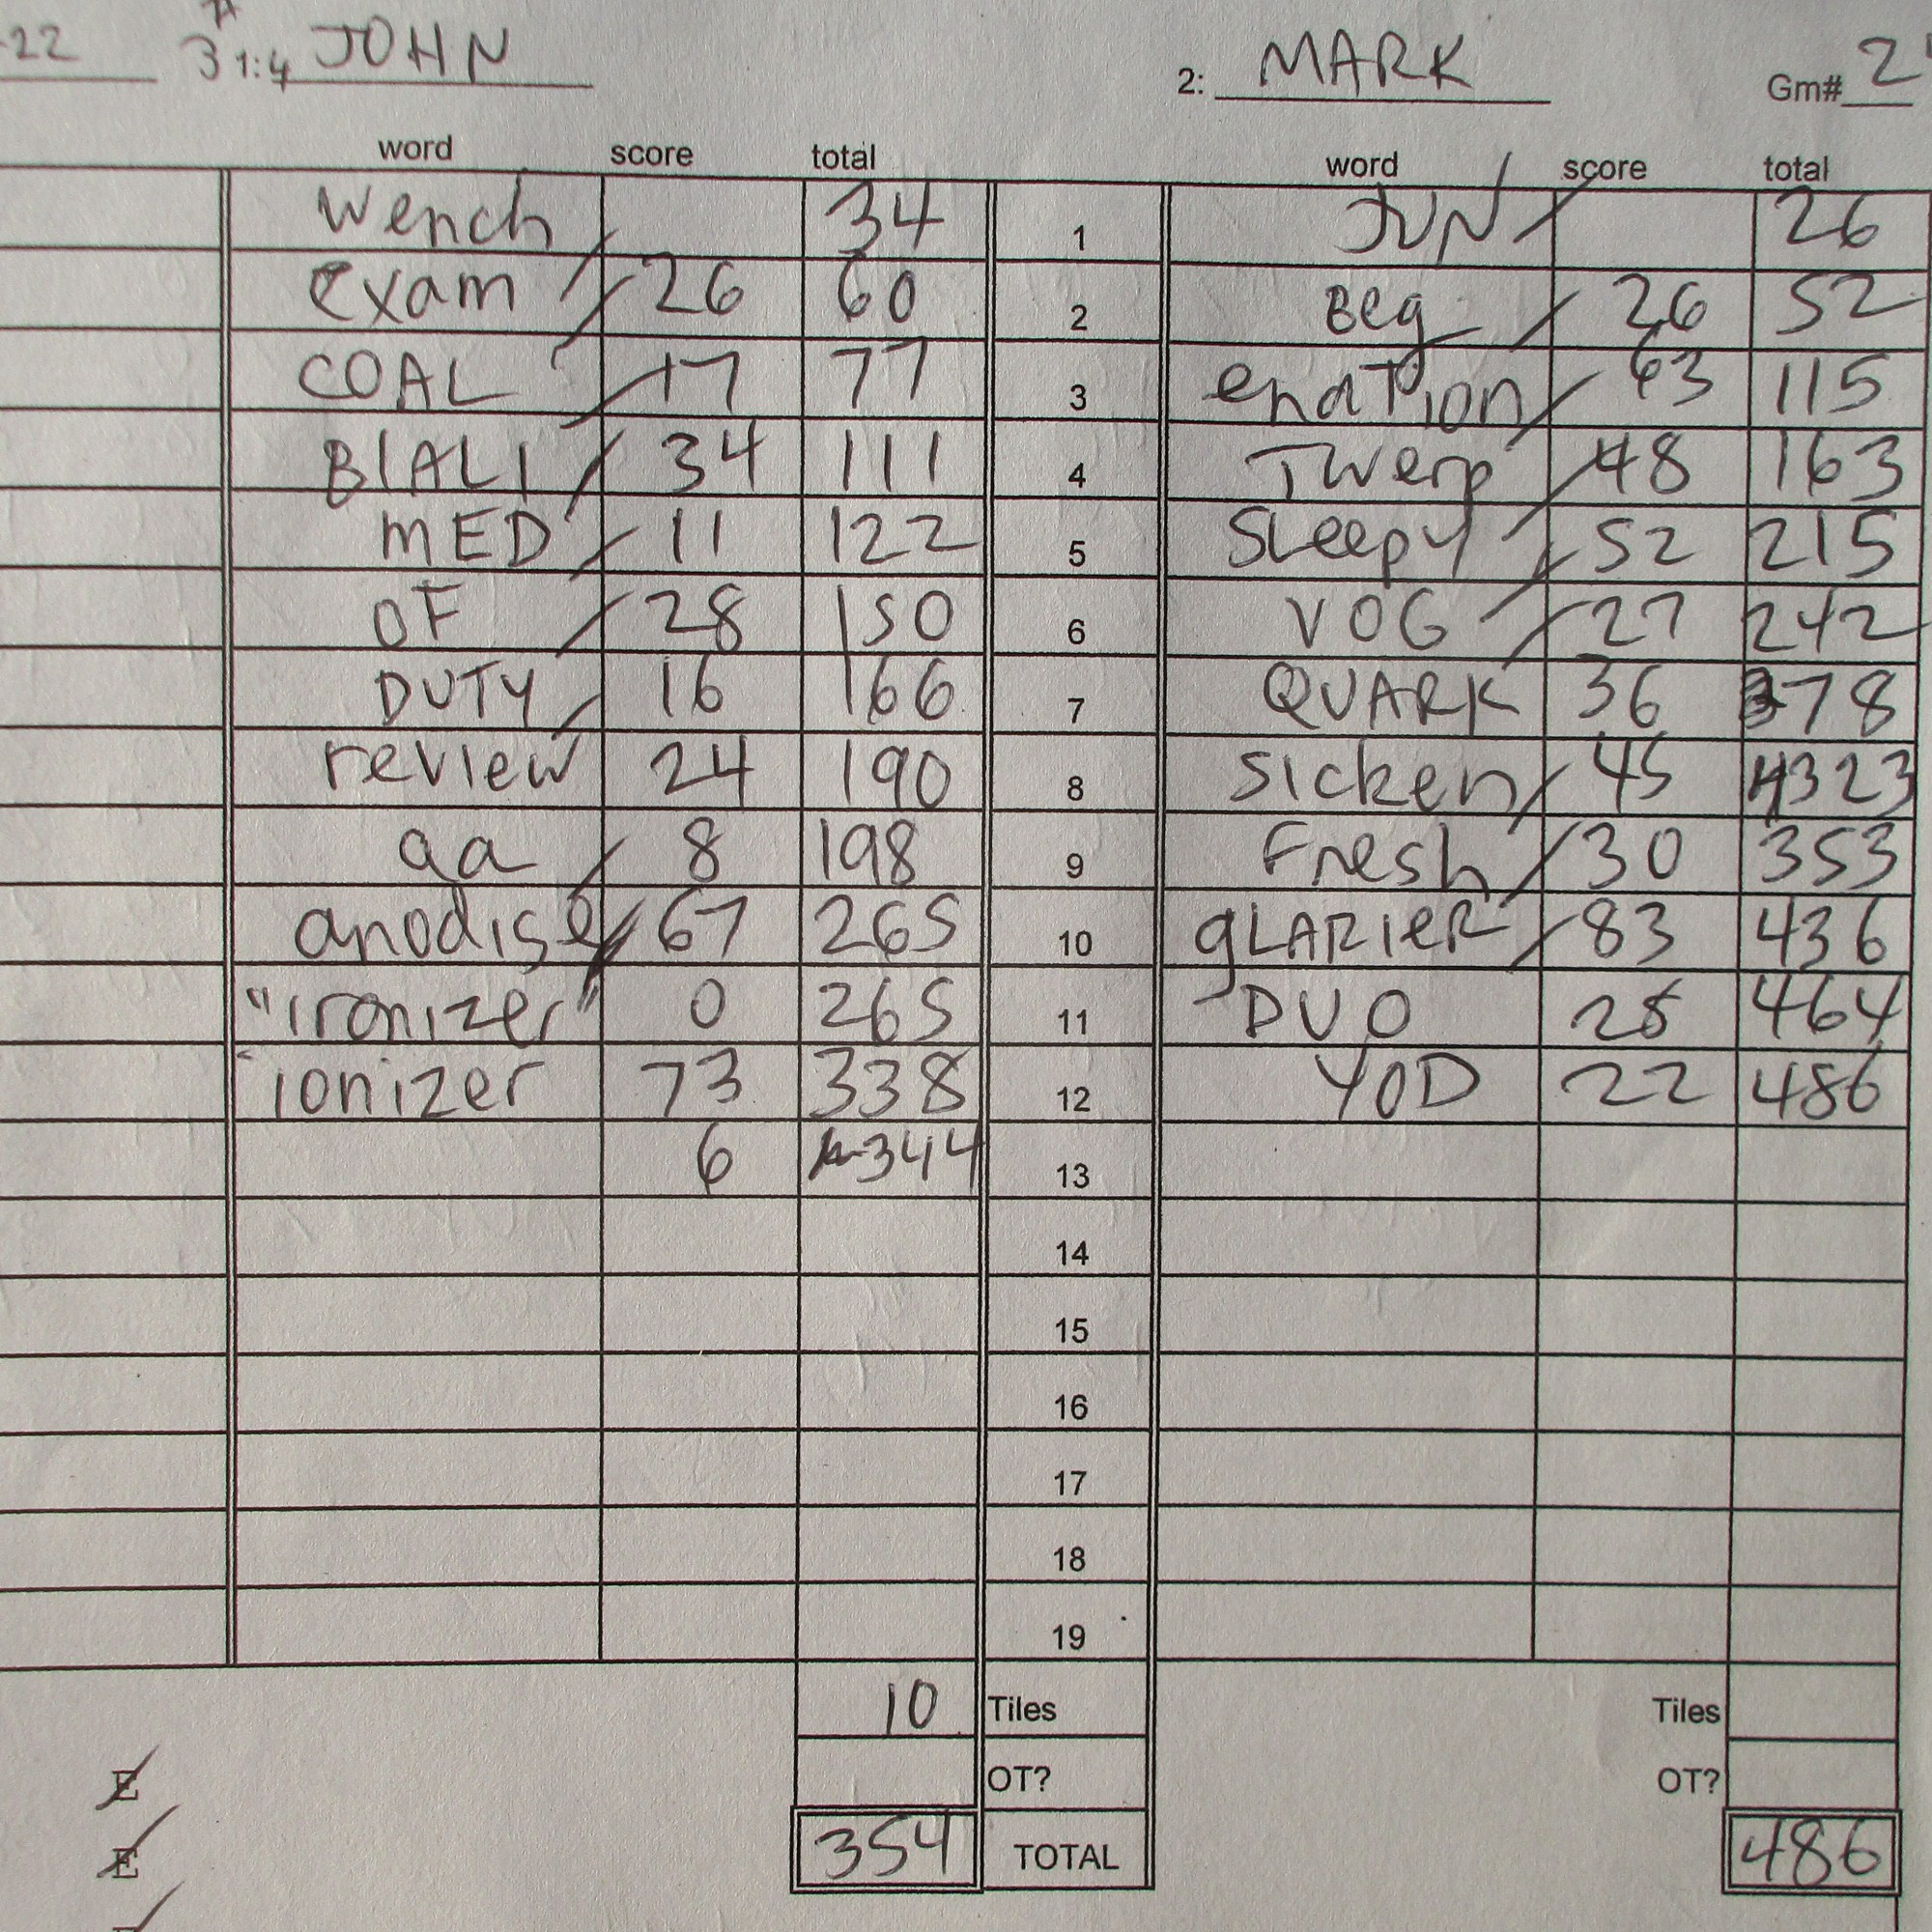 -22 3 1:4 JOHN 2: MARK Gm# 2
word score total word score total
wench 34 1 JUN 26
exam 26 60 2 Beg 26 52
COAL 17 77 3 enation 63 115
BIALI 34 111 4 Twerp 48 163
mED 11 122 5 Sleepy 52 215
OF 28 150 6 VOG 27 242
DUTY 16 166 7 QUARK 36 378
review 24 190 8 sicken 45 4323
aa 8 198 9 Fresh 30 353
anodise 67 265 10 gLAZIER 83 436
"ironizer" 0 265 11 DUO 28 464
ionizer 73 338 12 YOD 22 486
6 344 13
14
15
16
17
18
19
10 Tiles Tiles
OT? OT?
E
354 TOTAL 486
E